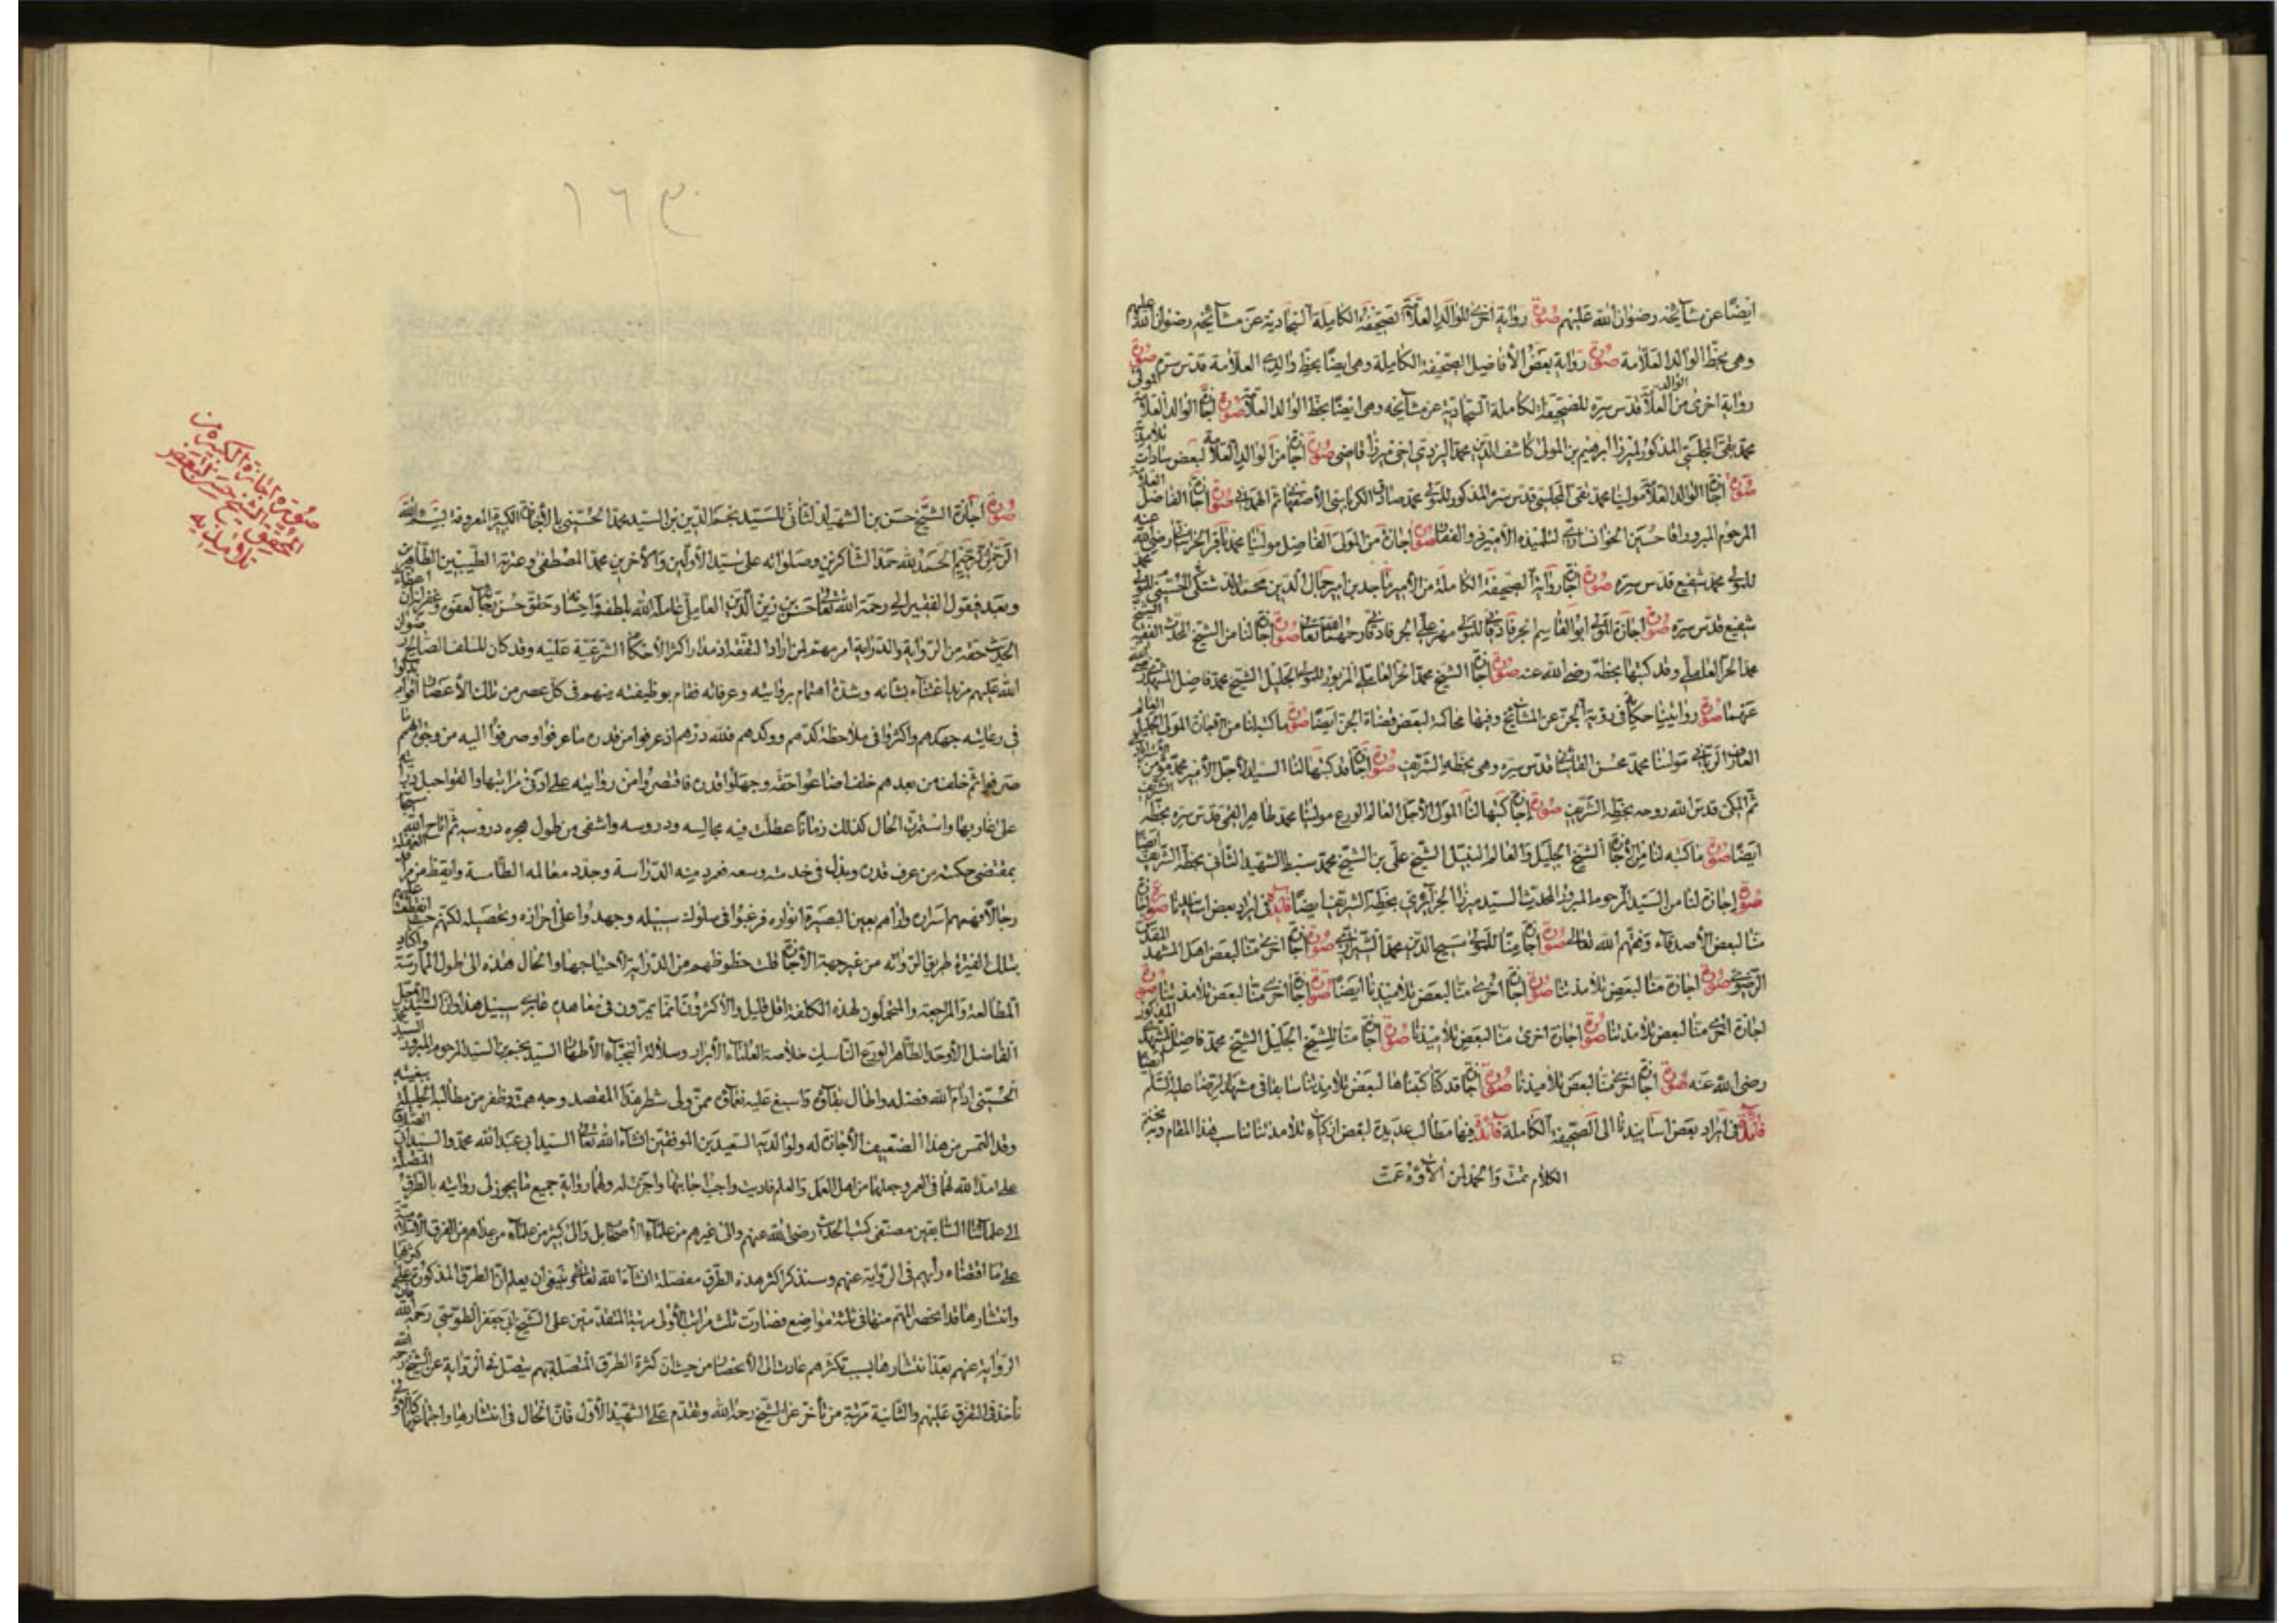 ايضًا عن مشايخه رضوان الله عليهم صورة رواية اخرى للوالد العلامة للصحيفة الكاملة السجادية عن مشايخه رضوان الله عليهم
وهي بخط الوالد العلامة صورة رواية بعض الأفاضل الصحيفة الكاملة وهي ايضا بخط والدي العلامة قدس سره صورة
رواية اخرى من الوالد العلامة قدس سره للصحيفة الكاملة السجادية عن مشايخه وهي ايضا بخط الوالد العلامة صورة اجازة الوالد العلامة المولى
محمد تقي المجلسي المذكور لميرزا ابرهيم بن المولى كاشف الدين محمد اليزدي اخي ميرزا قاضي صورة اجازة من الوالد العلامة لبعض سادات تلامذته
صورة اجازة الوالد العلامة مولينا محمد تقي المجلسي قدس سره المذكور للمولى محمد صادق الكرباسي الأصفهاني ثم الهمداني صورة اجازة الفاضل العلامة
المرحوم المبرور اقا حسين الخوانساري لتلميذه الأمير ذو الفقار صورة اجازة من المولى الفاضل مولينا محمد باقر الخراساني رضي الله عنه
للمولى محمد شفيع قدس سره صورة اجازة رواية الصحيفة الكاملة من الأمير ماجد بن امير جمال الدين محمد الدشتكي الحسيني للمولى محمد
شفيع قدس سره صورة اجازة المولى ابو القاسم الجرفادقاني للمولى مهر علي الجرفادقاني رحمهما الله تعالى صورة اجازة لنا من الشيخ المحدث الفقيه الشيخ
محمد الحر العاملي وقد كتبها بخطه رضي الله عنه صورة اجازة الشيخ محمد الحر العاملي المزبور للمولى الجليل الشيخ محمد فاضل المشهدي رضي الله
عنهما صورة روايتنا حكاية في رؤية الجن عن المشايخ وفيها محاكمة لبعض قضاة الجن ايضا صورة ما كتبه لنا من الاجازات المولى الجليل العالم
العارف الرباني مولينا محمد محسن القاساني قدس سره وهي بخطه الشريف صورة اجازة قد كتبها لنا السيد الأجل الأمير محمد مؤمن الاسترابادي
ثم المكي قدس الله روحه بخطه الشريف صورة اجازة كتبها لنا المولى الأجل العالم الورع مولينا محمد طاهر القمي قدس سره بخطه الشريف
ايضا صورة ما كتبه لنا من الأجازة الشيخ الجليل والعالم النبيل الشيخ علي بن الشيخ محمد سبط الشهيد الثاني بخطه الشريف ايضا
صورة اجازة لنا من السيد المرحوم المبرور المحدث السيد ميرزا الجزائري بخطه الشريف ايضا فائدة في ايراد بعض اسانيدنا صورة اجازة
منا لبعض الأصدقاء وفقهم الله تعالى صورة اجازة منا للمولى مسيح الدين محمد الشيرازي صورة اجازة اخرى منا لبعض اهل المشهد المقدس
الرضوي صورة اجازة منا لبعض تلامذتنا صورة اجازة اخرى منا لبعض تلاميذنا ايضا صورة اجازة اخرى منا لبعض تلامذتنا صورة
اجازة اخرى منا لبعض تلامذتنا صورة اجازة اخرى منا لبعض تلاميذنا صورة اجازة منا للشيخ الجليل الشيخ محمد فاضل المشهدي المذكور
رضي الله عنه صورة اجازة اخرى منا لبعض تلاميذنا صورة اجازة قد كنا كتبناها لبعض تلامذتنا سابقا في مشهد الرضا عليه السلم ايضا
فائدة في ايراد بعض اسانيدنا الى الصحيفة الكاملة فائدة فيها مطالب عديدة لبعض ازكياء تلامذتنا تناسب هذا المقام وبه نختم
الكلام تمت والحمد لمن آلاؤه عمت
١٦٣
صورة اجازة الشيخ حسن بن الشهيد الثاني للسيد نجم الدين بن السيد محمد الحسيني بالأجازة الكبيرة المعروفة بسم الله
الرحمن الرحيم الحمد لله حمد الشاكرين وصلواته على سيد الأولين والأخرين محمد المصطفى وعترته الطيبين الطاهرين
وبعد فيقول الفقير الى رحمة الله تعالى حسن بن زين الدين العاملي عامله الله بلطفه واحسانه وحقق حسن رجائه لعفوه وغفرانه ان اعطاء
الحديث حقه من الرواية والدراية امر مهم لمن اراد التفقه اذ مدار اكثر الأحكام الشرعية عليه وقد كان للسلف الصالح رضوان
الله عليهم مزيد اعتناء بشانه وشدة اهتمام برفايته وعرفانه فقام بوظيفته منهم في كل عصر من تلك الأعصار اقوام بذلوا
في رعايته جهدهم واكثروا في ملاحظة كدهم ووكدهم فلله درهم اذ عرفوا من قدره ما عرفوا وصرفوا اليه من وجوه الهمم ما
صرفوا ثم خلف من بعدهم خلف اضاعوا حقه وجهلوا قدره فاقتصروا من روايته على ادنى مراتبها والقوا حبل درايته
على غاربها واستمرت الحال كذلك زمانا عطلت فيه مجالسه ودروسه واشفى من طول هجره دروسه ثم اتاح الله سبحانه
بمقتضى حكمته من عرف قدره وبذل في خدمته وسعه فعمر دمنه الدراسة وجدد معالمه الطامسة وايقظ من مراقد الغفلة
رجالا فهمهم اسراره واراهم بعين البصيرة انواره فرغبوا في سلوك سبيله وجهدوا على احرازه وتحصيله لكنهم حيث انقطعت عليهم
بتلك الفترة طريق الرواية من غير جهة الأجازة قلت حظوظهم من الدراية لأحتياجها والحال هذه الى طول الممارسة واكثار
المطالعة والمراجعة والمتحملون لهذه الكلفة اقل قليل والأكثرون انما يمرون في معاهده عابري سبيل هذا وان السيد الأجل
الفاضل الأوحد الطاهر الورع الناسك خلاصة العلماء الأبرار وسلالة النجباء الأطهار السيد نجم بن السيد المرحوم المبرور السيد محمد
الحسيني ادام الله فضله واطال بقاؤه واسبغ عليه نعماؤه ممن ولى شطر هذا المقصد وجه همته وظفر من مطالبه الجليلة ببغيته
وقد التمس من هذا الضعيف الأجازة له ولوالديه السعيدين الموفقين انشاء الله تعالى السيد ابي عبد الله محمد والسيد ابي الصلاح
علي امد الله لهما في العمر وجعلهما من اهل العمل والعلم فاديت واجب اجابتها واجزت له ولهما رواية جميع ما يجوز لي روايته بالطرق المفصلة
الى علمائنا السابقين مصنفي كتب الحديث رضي الله عنهم والى غيرهم من علماء الأصحاب بل والى كثير من علماء من عداهم من الفرق الأسلامية
على ما اقتضاه رأيهم في الرواية عنهم وسنذكر اكثر هذه الطرق مفصلة انشاء الله تعالى وينبغي ان يعلم ان الطرق المذكورة على كثرتها
وانتشارها قد انحصر المهم منها في ثلثة مواضع فصارت ثلث مراتب الأولى مرتبة المتقدمين على الشيخ ابي جعفر الطوسي رحمه الله فان
الرواية عنهم بعد انتشارها بسبب تكثرهم عادت الى الأنحصار من حيث ان كثرة الطرق المتصلة بهم يتصل فيها الرواية عن الشيخ رحمه الله
تأخذ في التفرق عليهم والثانية مرتبة من تأخر عن الشيخ رحمه الله وتقدم على الشهيد الأول فان الحال في انتشارها واجتماعها كالأولى
صورة اجازة الكبيرة من
المحقق الشيخ حسن لبعض
تلاميذه